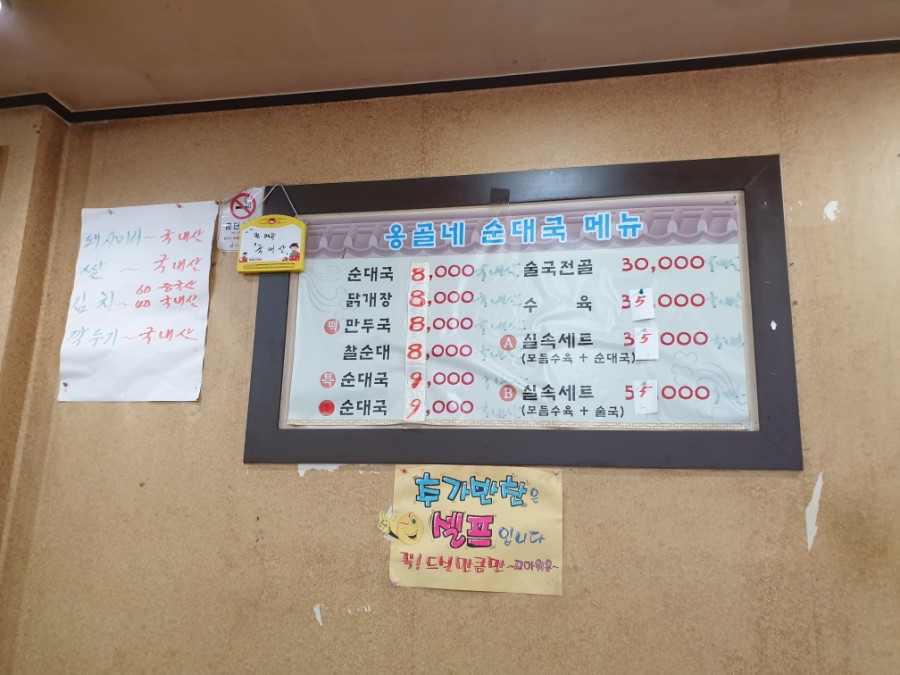 돼지머리~국내산
쌀 ~ 국내산
김치~ 60 중국산
40 국내산
깍두기~국내산
국내산
옹골네 순대국 메뉴
순대국 8,000 국내산
닭개장 8,000
떡 만두국 8,000
찰순대 8,000
특 순대국 9,000
순대국 9,000
술국전골 30,000 국내산
수 육 35,000 국내산
A 실속세트 35,000
(모듬수육 + 순대국)
B 실속세트 55,000
(모듬수육 + 술국)
추가반찬은
셀프입니다
꼭! 드실만큼만~고마워용~